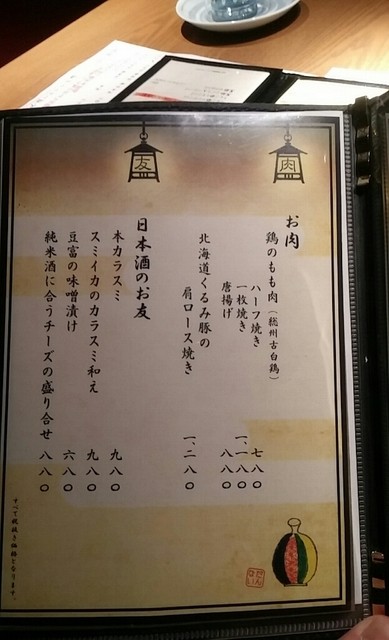 肉
友
お肉
鶏のもも肉（総州古白鶏）
ハーフ焼き 七八〇
一枚焼き 一、一八〇
唐揚げ 八八〇
北海道くるみ豚の
肩ロース焼き 一、二八〇
日本酒のお友
本カラスミ 九八〇
スミイカのカラスミ和え 九八〇
豆富の味噌漬け 六八〇
純米酒に合うチーズの盛り合せ 八八〇
すべて税抜き価格となります。